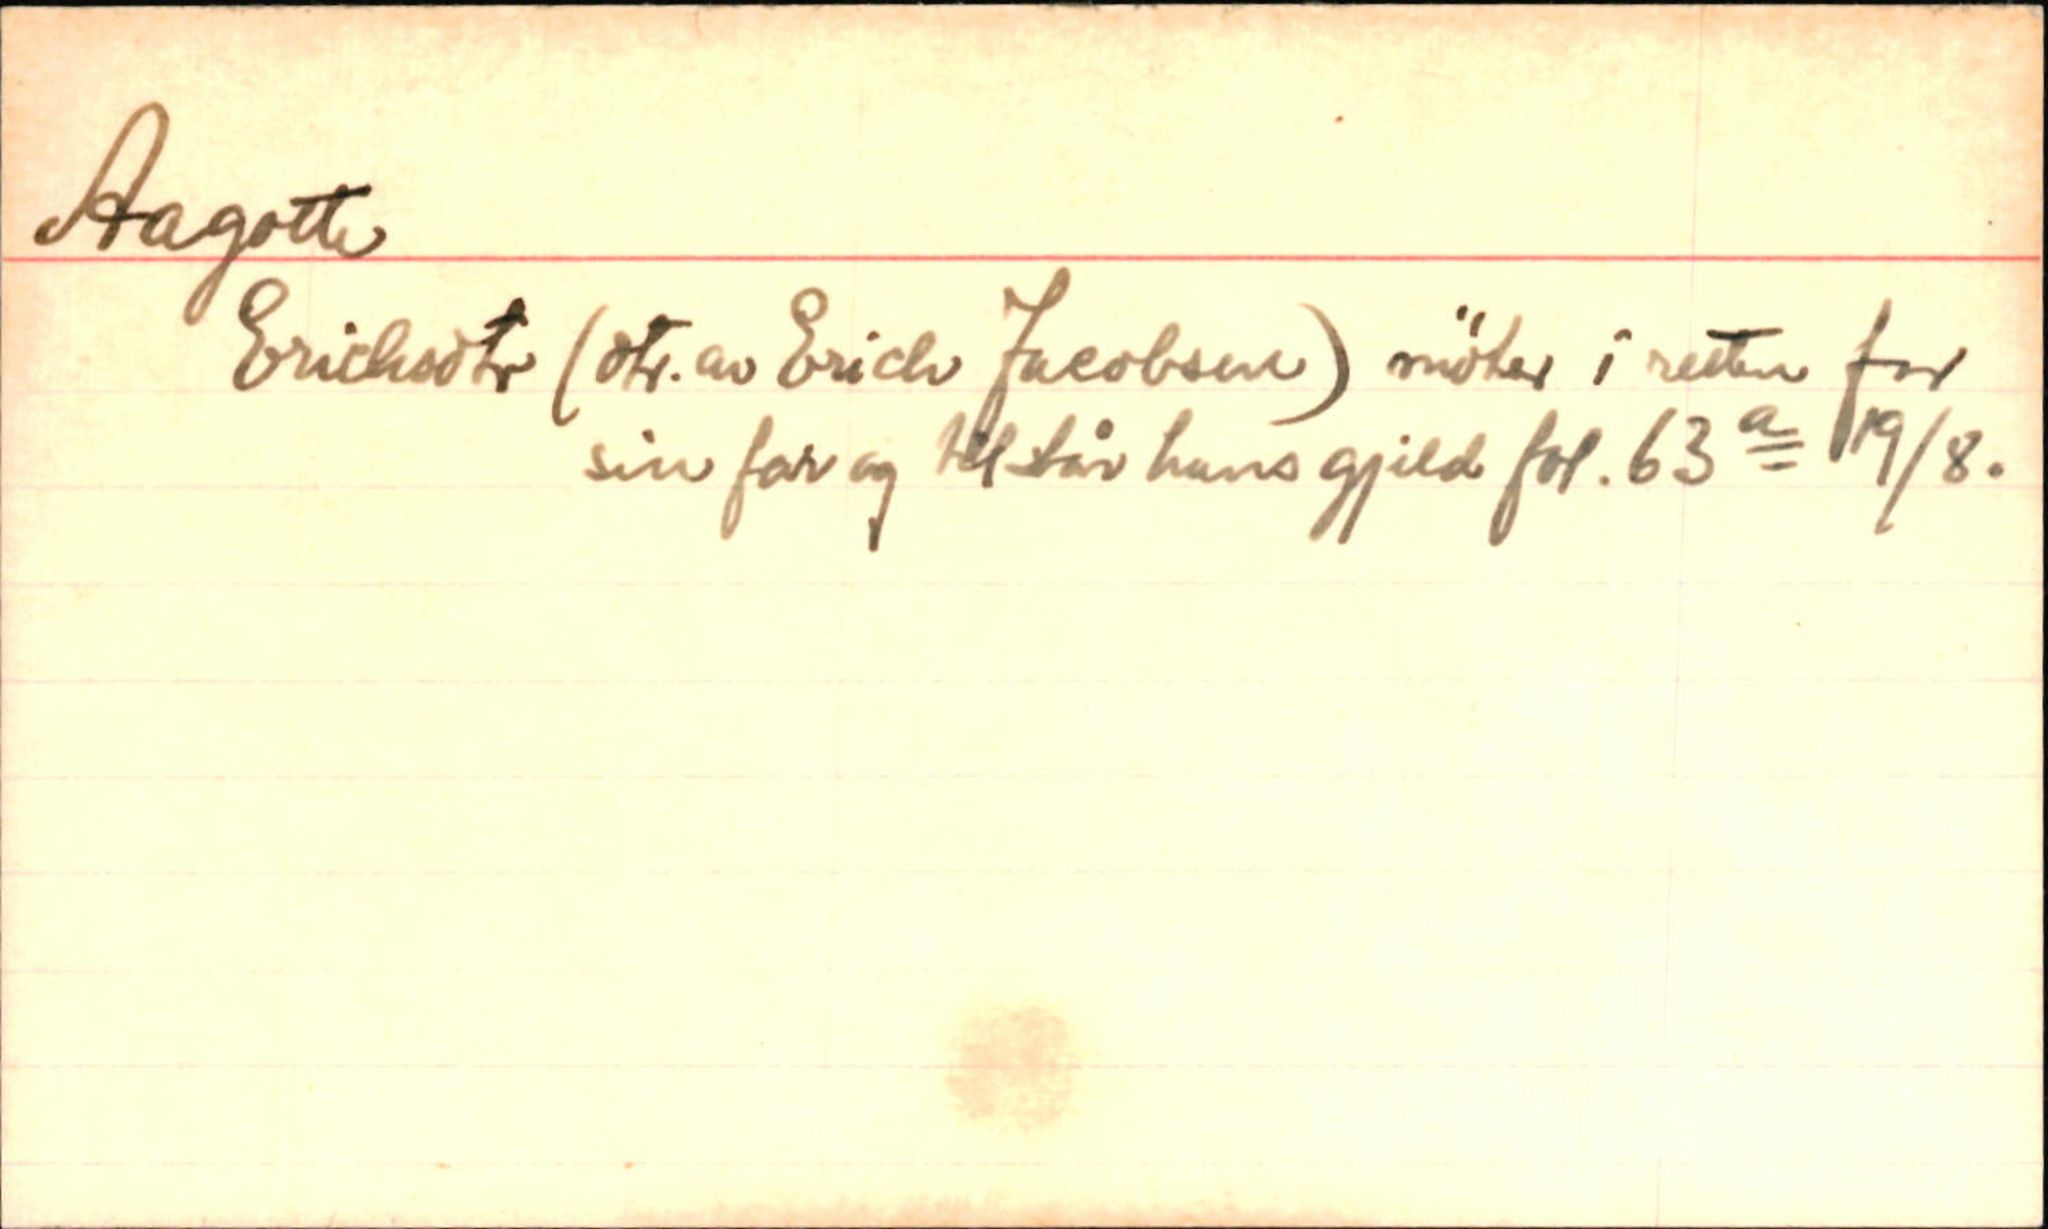 Aagotte
Ericksdtr (dtr. av Erich Jacobsen) möter i retten for
sin far og tilstår hans gjeld fol. 63a 19/8.